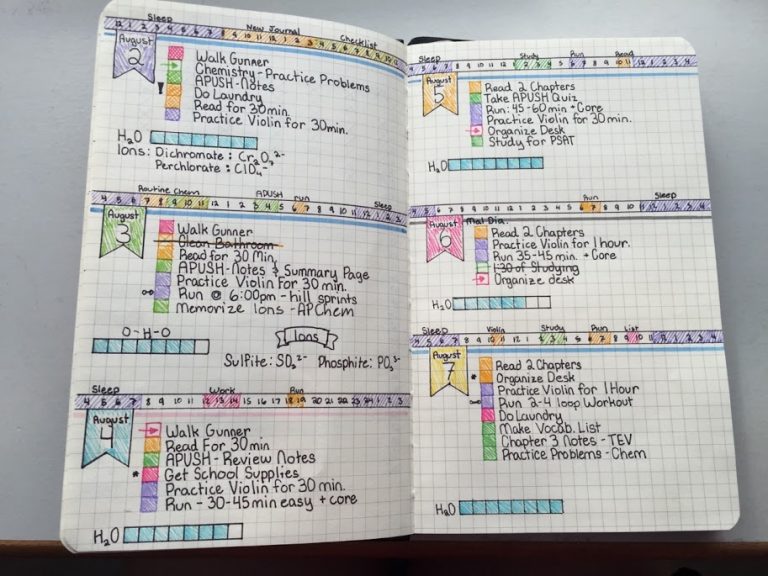 Sleep New Journal Checklist
August 2
Walk Gunner
Chemistry - Practice Problems
! APUSH - Notes
Do Laundry
Read for 30 min.
Practice Violin for 30 min.
H₂O
Ions: Dichromate: Cr₂O₃²⁻
Perchlorate: ClO₄⁻
Routine Chem APUSH run Sleep
4 5 6 7 8 9 10 11 12 1 2 3 4 5 6 7 8 9 10 11 12 1 2 3
August 3
Walk Gunner
Clean Bathroom
Read for 30 Min.
APUSH - Notes & Summary Page
Practice Violin for 30 min.
Run @ 6:00pm - hill sprints
Memorize Ions - AP Chem
O-H-O
Ions
Sulfite: SO₃²⁻ Phosphite: PO₃³⁻
Sleep Work Run
August 4
Walk Gunner
Read For 30 min
APUSH - Review Notes
* Get School Supplies
Practice Violin for 30 min.
Run - 30-45 min easy + core
H₂O
Sleep Study Run Read
August 5
Read 2 Chapters
Take APUSH Quiz
Run: 45-60 min + Core
Practice Violin for 30 min.
Organize Desk
Study for PSAT
H₂O
Run Sleep
August 6
Read 2 Chapters
Practice Violin for 1 hour.
Run 35-45 min. + Core
1:30 of Studying
Organize desk
H₂O
Sleep Violin Study Run List
August 7
Read 2 Chapters
* Organize Desk
Practice Violin for 1 Hour
Run 2-4 loop Workout
Do Laundry
Make Vocab. List
Chapter 3 Notes - TEV
Practice Problems - Chem
H₂O